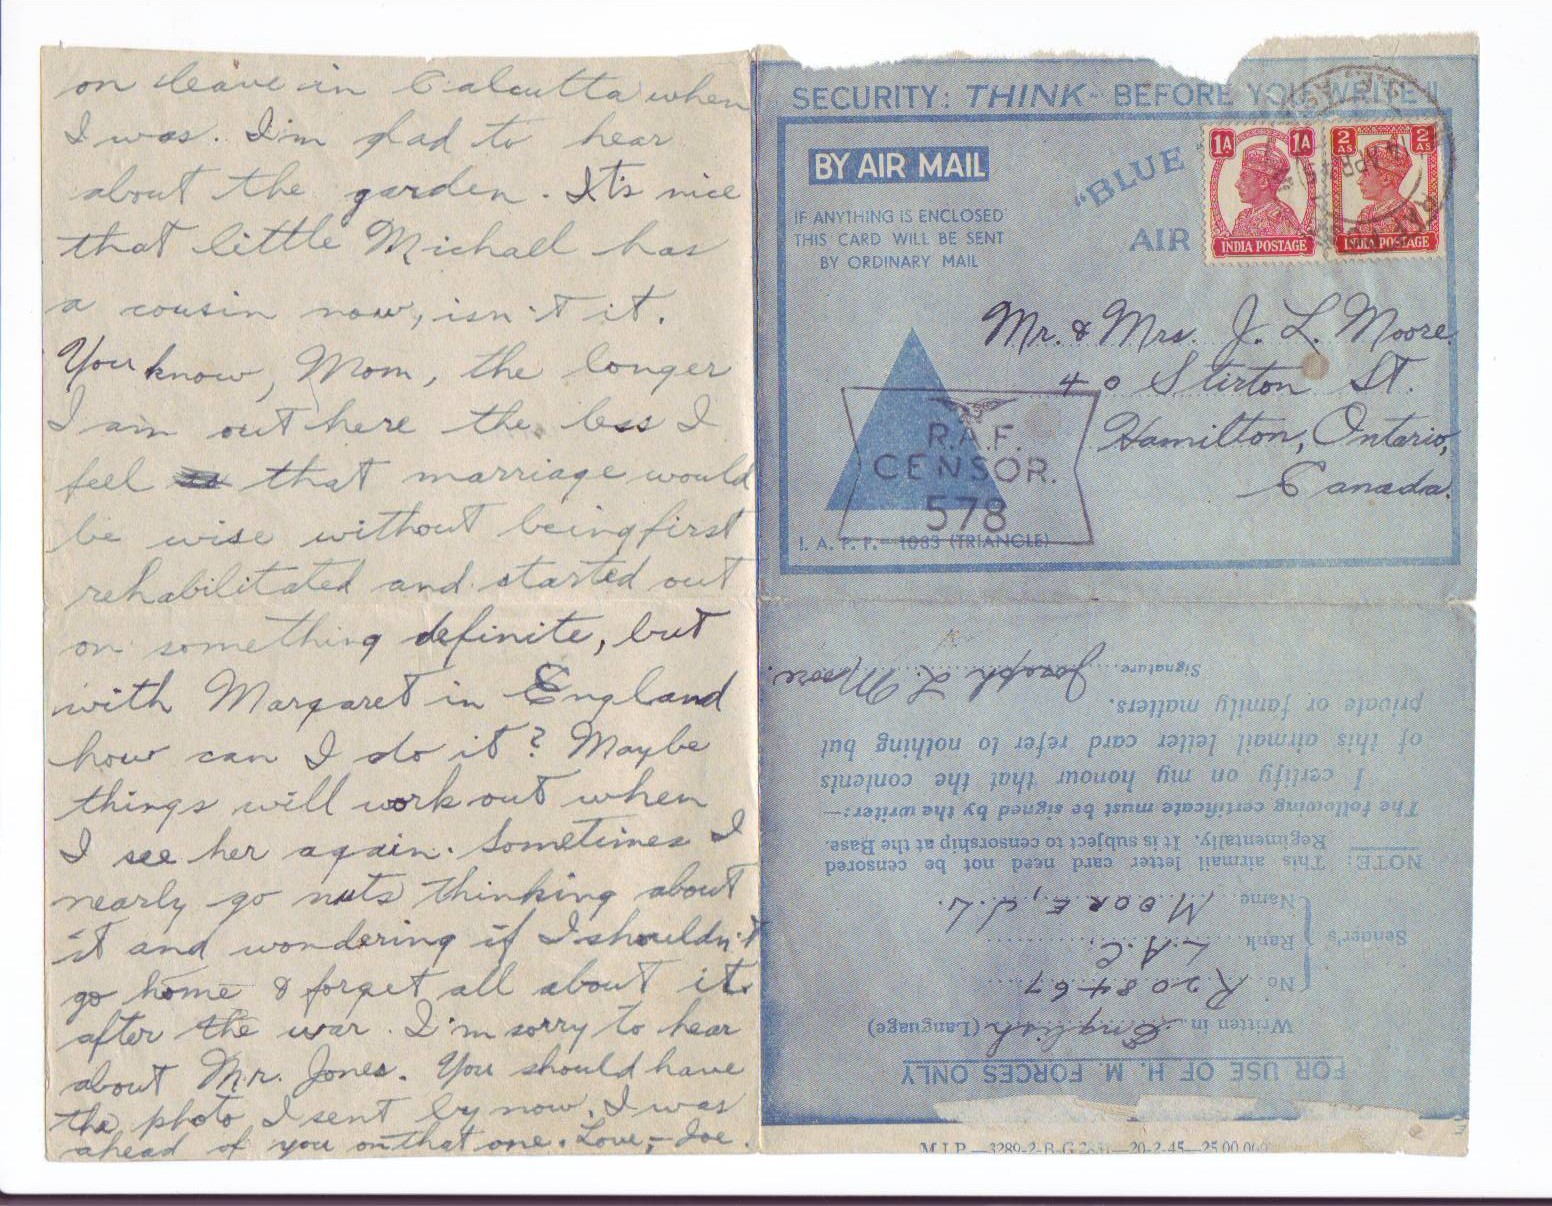 on leave in Calcutta when
I was. I'm glad to hear
about the garden. It's nice
that little Michael has
a cousin now, isn't it.
You know, Mom, the longer
I am out here the less I
feel that marriage would
be wise without being first
rehabilitated and started out
on something definite, but
with Margaret in England
how can I do it? Maybe
things will work out when
I see her again. Sometimes I
nearly go nuts thinking about
it and wondering if I shouldn't
go home & forget all about it
after the war. I'm sorry to hear
about Mr. Jones. You should have
the photo I sent by now. I was
ahead of you on that one. Love, – Joe.
SECURITY: THINK - BEFORE YOU WRITE!!
BY AIR MAIL
"BLUE
AIR
1A 1A
INDIA POSTAGE
2 AS 2 AS
INDIA POSTAGE
IF ANYTHING IS ENCLOSED
THIS CARD WILL BE SENT
BY ORDINARY MAIL
Mr. & Mrs. J. L. Moore.
40 Stirton St.
Hamilton, Ontario,
Canada.
R.A.F.
CENSOR.
578
I. A. F. F.— 1083 (TRIANGLE)
FOR USE OF H. M. FORCES ONLY
Written in English (Language)
Sender's
No R208467
Rank L.A.C.
Name MOORE, J.L.
NOTE: This airmail letter card need not be censored
Regimentally. It is subject to censorship at the Base.
The following certificate must be signed by the writer:—
I certify on my honour that the contents
of this airmail letter card refer to nothing but
private or family matters.
Signature Joseph L. Moore.
M.I.P.—3289-2-B-G 20-2-45—25,00,000